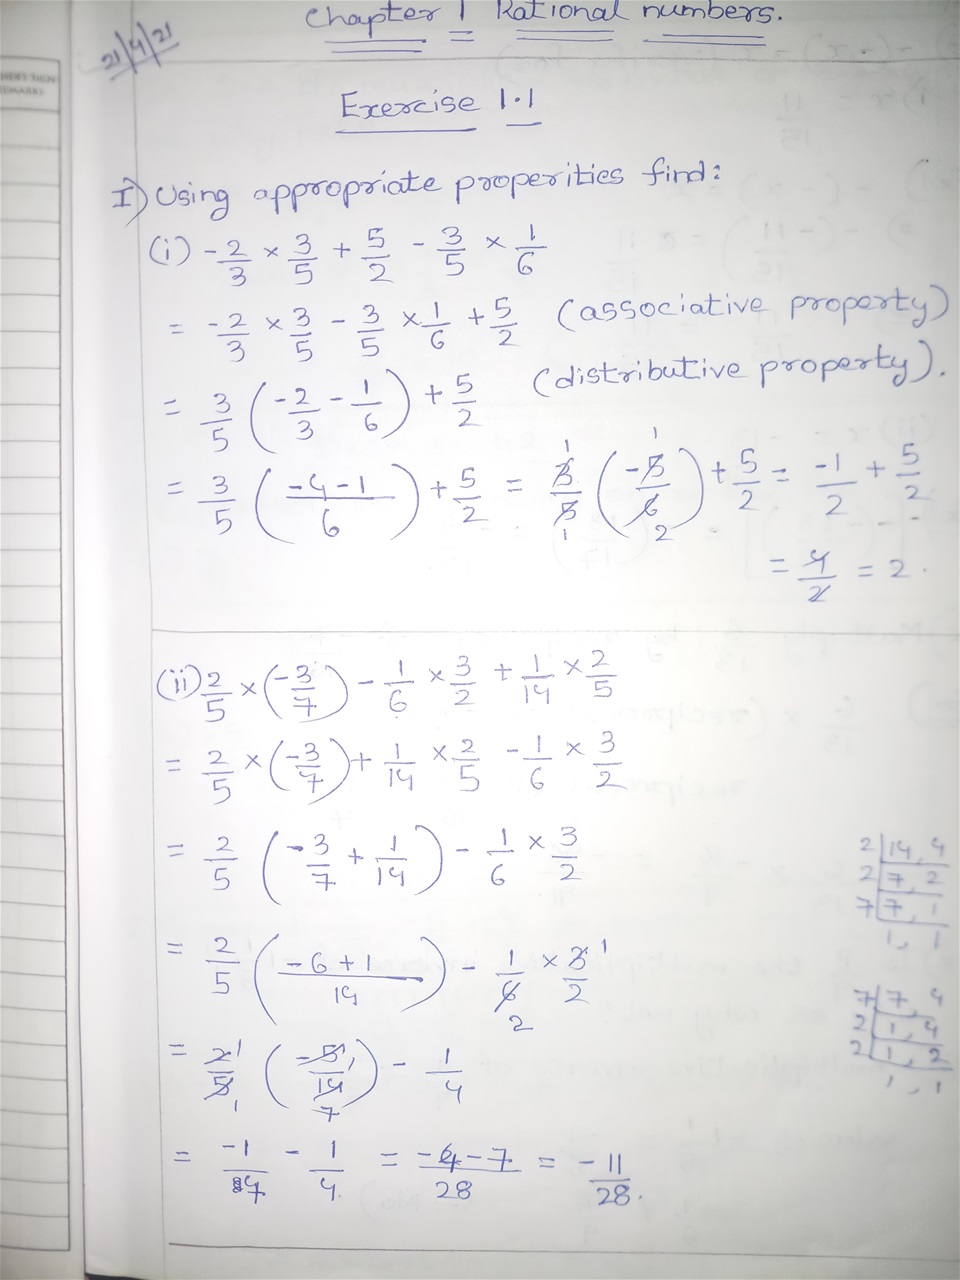 Chapter 1 Rational numbers.
21/4/21
Exercise 1.1
I) Using appropriate properities find:
(i) -2/3 × 3/5 + 5/2 - 3/5 × 1/6
= -2/3 × 3/5 - 3/5 × 1/6 + 5/2 (associative property)
= 3/5 (-2/3 - 1/6) + 5/2 (distributive property).
= 3/5 (-4-1/6) + 5/2 = 3/5 (-5/6) + 5/2 = -1/2 + 5/2
= 4/2 = 2.
(ii) 2/5 × (-3/7) - 1/6 × 3/2 + 1/14 × 2/5
= 2/5 × (-3/7) + 1/14 × 2/5 - 1/6 × 3/2
= 2/5 (-3/7 + 1/14) - 1/6 × 3/2
= 2/5 (-6+1/14) - 1/6 × 3/2
= 2/5 (-5/14) - 1/4
= -1/7 - 1/4 = -4-7/28 = -11/28.
2 | 14, 4
2 | 7, 2
7 | 7, 1
1, 1
7 | 7, 4
2 | 1, 4
2 | 1, 2
1, 1